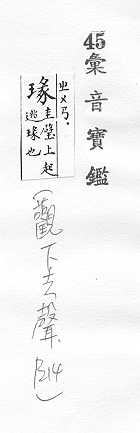 45彙音寶鑑
ㄓㄨㄢˋ
瑑 圭璧上起
遄瑑也
(觀下去聲.P214)